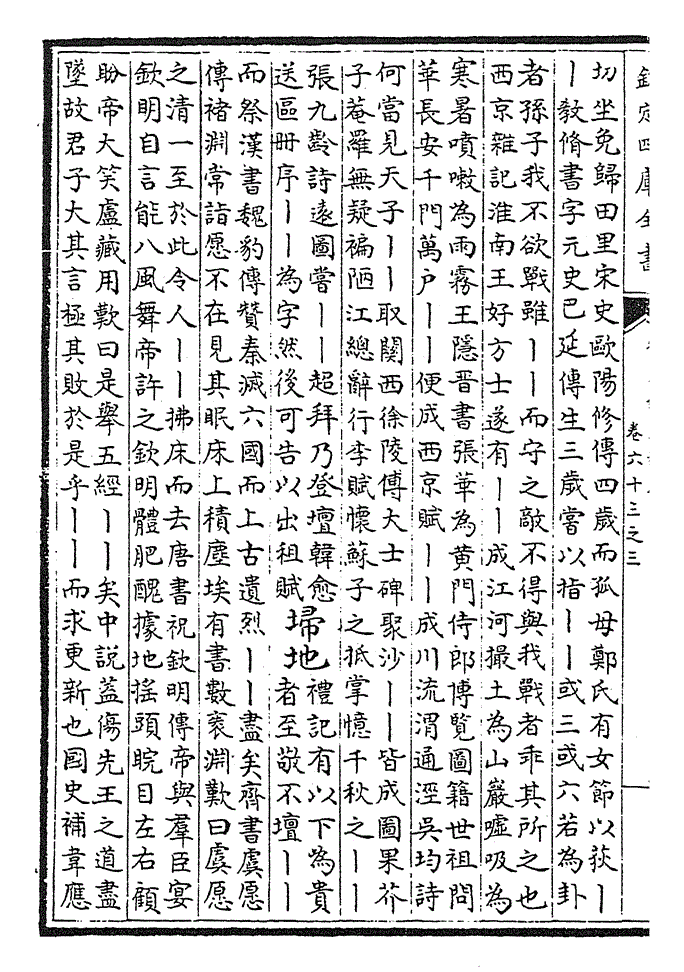 欽定四庫全書
卷六十三之三
切坐免歸田里宋史歐陽修傳四歲而孤母鄭氏有女節以荻丨
丨教脩書字元史巴延傳生三歲嘗以指丨丨或三或六若為卦
者孫子我不欲戰雖丨丨而守之敵不得與我戰者乖其所之也
西京雜記淮南王好方士遂有丨丨成江河撮土為山巖噓吸為
寒暑噴嗽為雨霧王隱晉書張華為黄門侍郎博覽圖籍世祖問
華長安千門萬户丨丨便成西京賦丨丨成川流渭通涇吳均詩
何當見天子丨丨取關西徐陵傅大士碑聚沙丨丨皆成圖果芥
子菴羅無疑褊陋江總辭行李賦懷蘇子之抵掌憶千秋之丨丨
張九齡詩遠圖嘗丨丨超拜乃登壇韓愈
送區册序丨丨為字然後可告以出租賦
埽地
禮記有以下為貴
者至敬不壇丨丨
而祭漢書魏豹傳贊秦滅六國而上古遺烈丨丨盡矣齊書虞愿
傳褚淵常詣愿不在見其眠床上積塵埃有書數袠淵歎曰虞愿
之清一至於此令人丨丨拂床而去唐書祝欽明傳帝與羣臣宴
欽明自言能八風舞帝許之欽明體肥醜據地揺頭睆目左右顧
盼帝大笑盧藏用歎曰是舉五經丨丨矣中說蓋傷先王之道盡
墜故君子大其言極其敗於是乎丨丨而求更新也國史補韋應